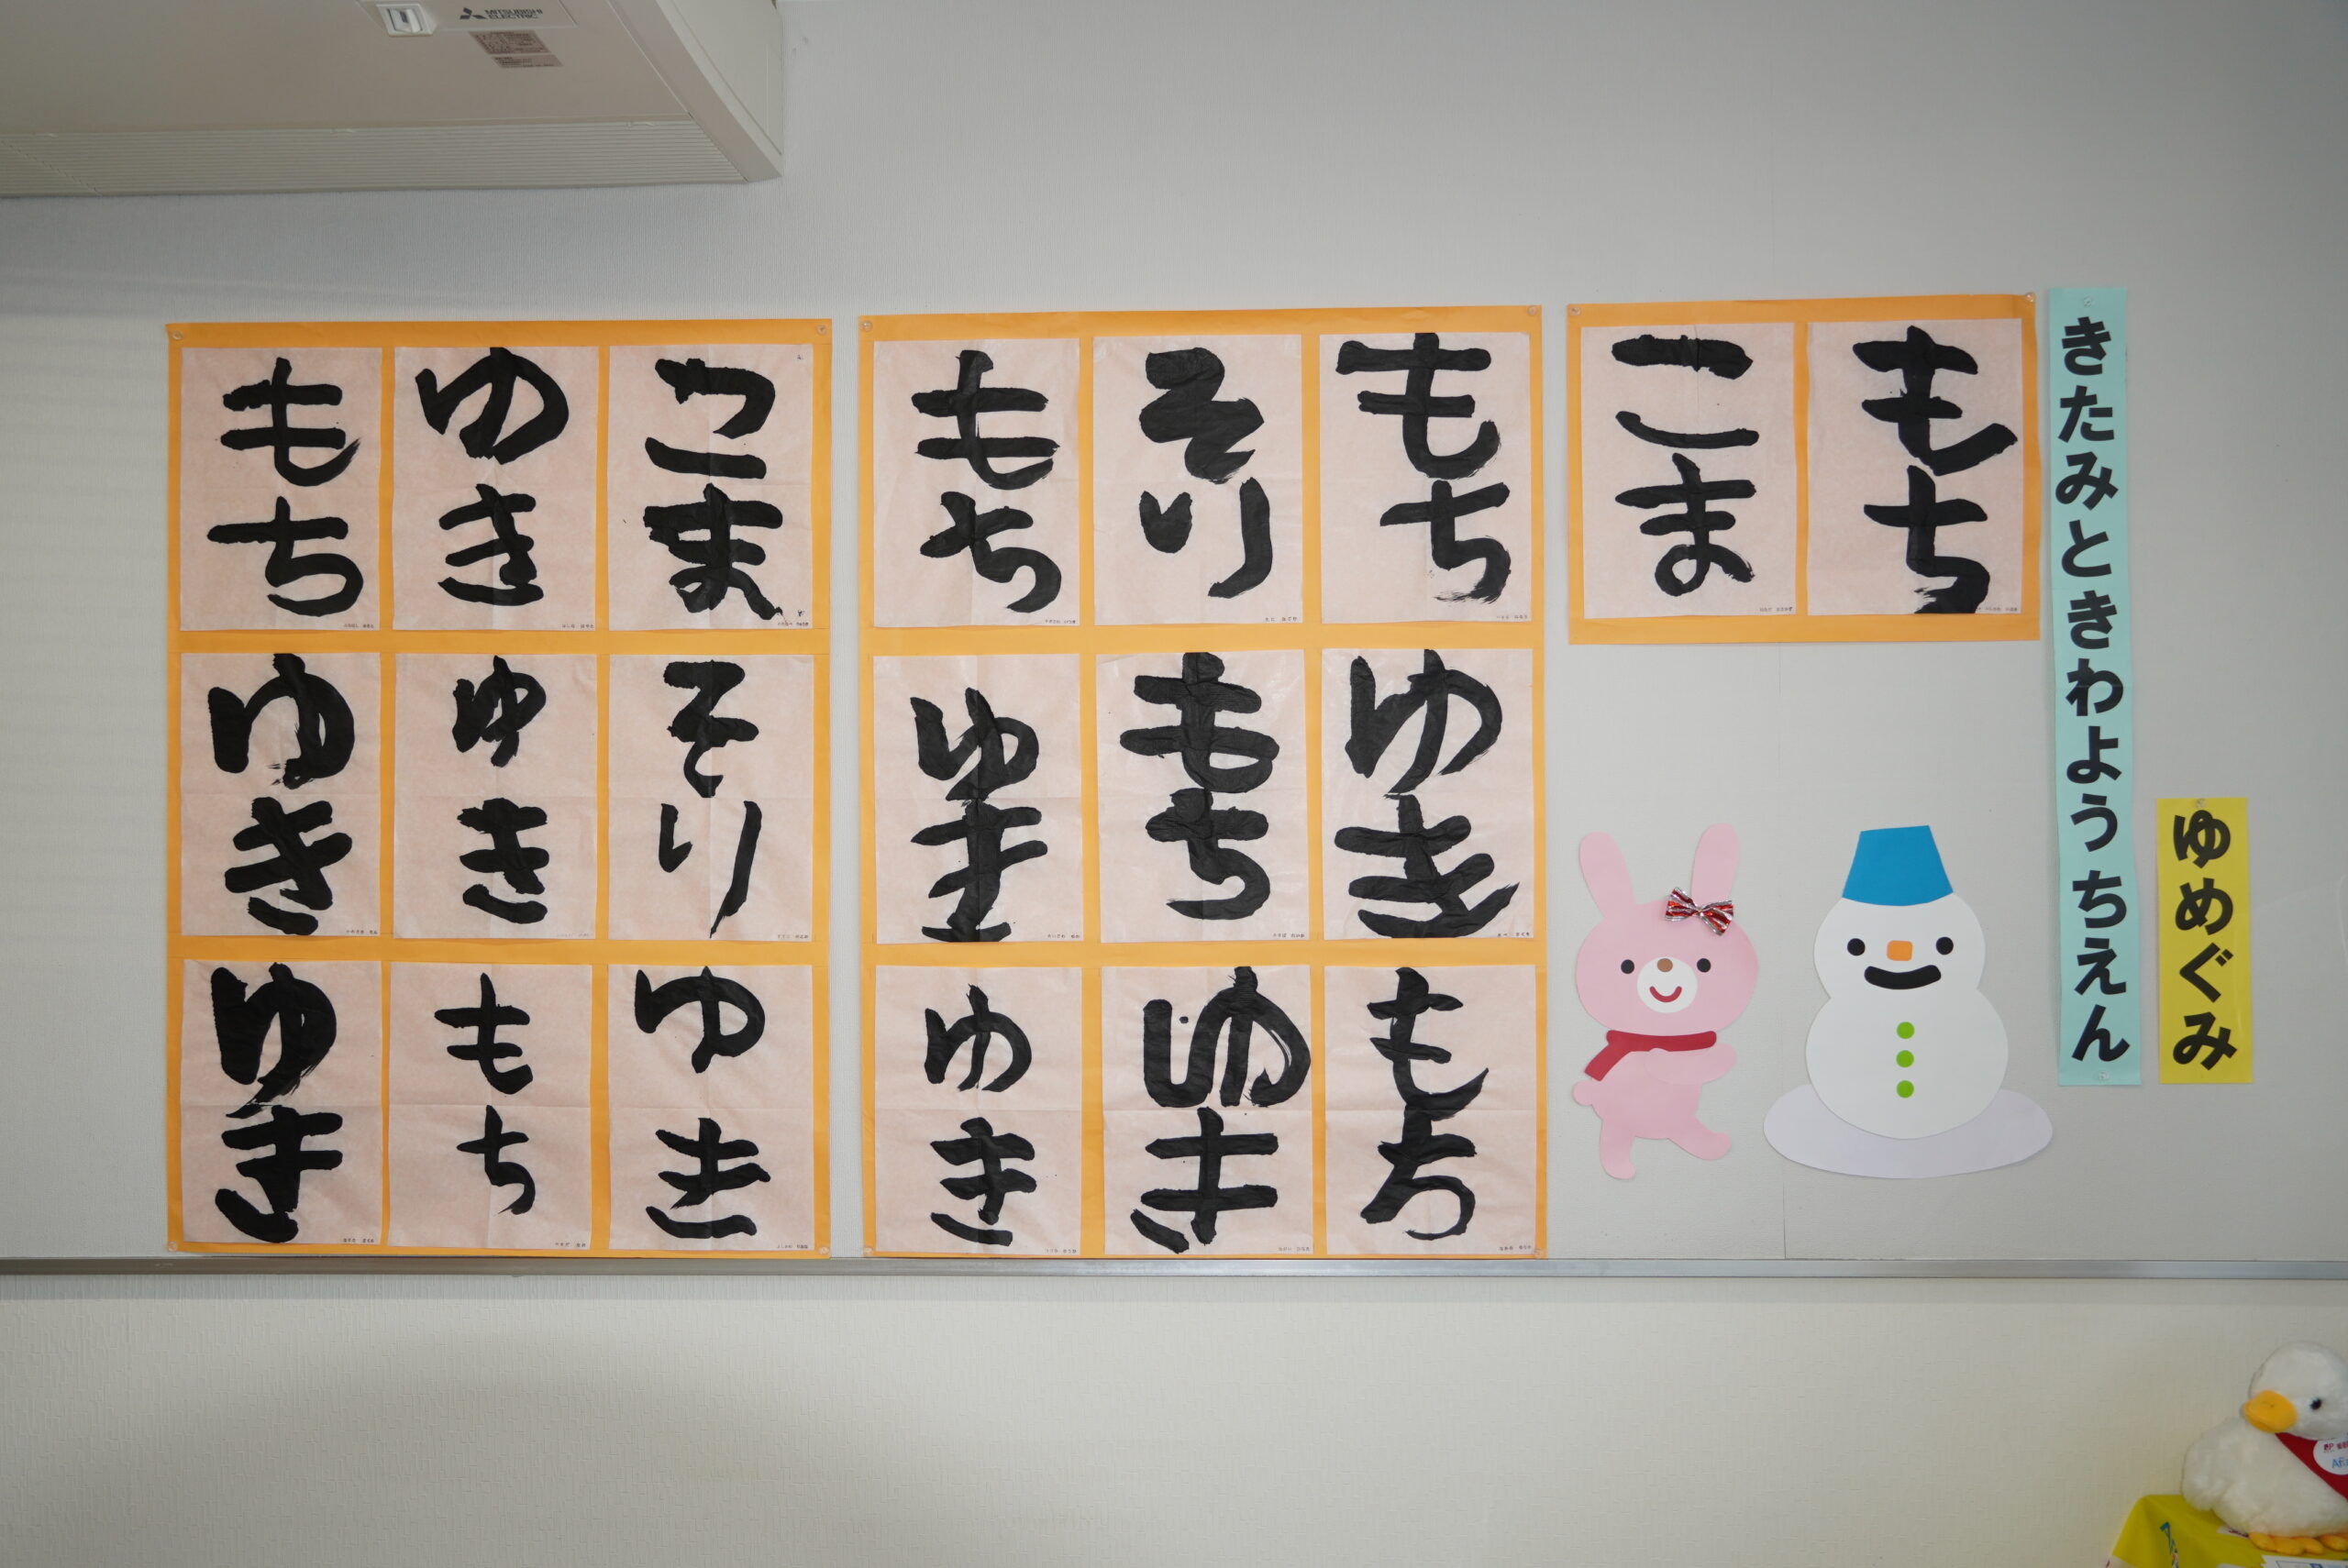 MITSUBISHI
ELECTRIC
きたみときわようちえん
ゆめぐみ
もち
こま
もち
そり
もち
ゆき
もち
ゆき
もち
ゆき
ゆき
こま
ゆき
もち
そり
ゆき
ゆき
ゆき
もち
ゆき